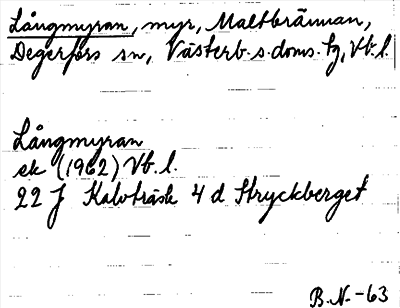 Långmyran, myr, Maltbrännan,
Degerfors sn, Västerb. s. doms. tg, Vb. l.
Långmyran
ek (1962) Vb. l.
22 J Kalvträsk 4 d Stryckberget
B.N.-63